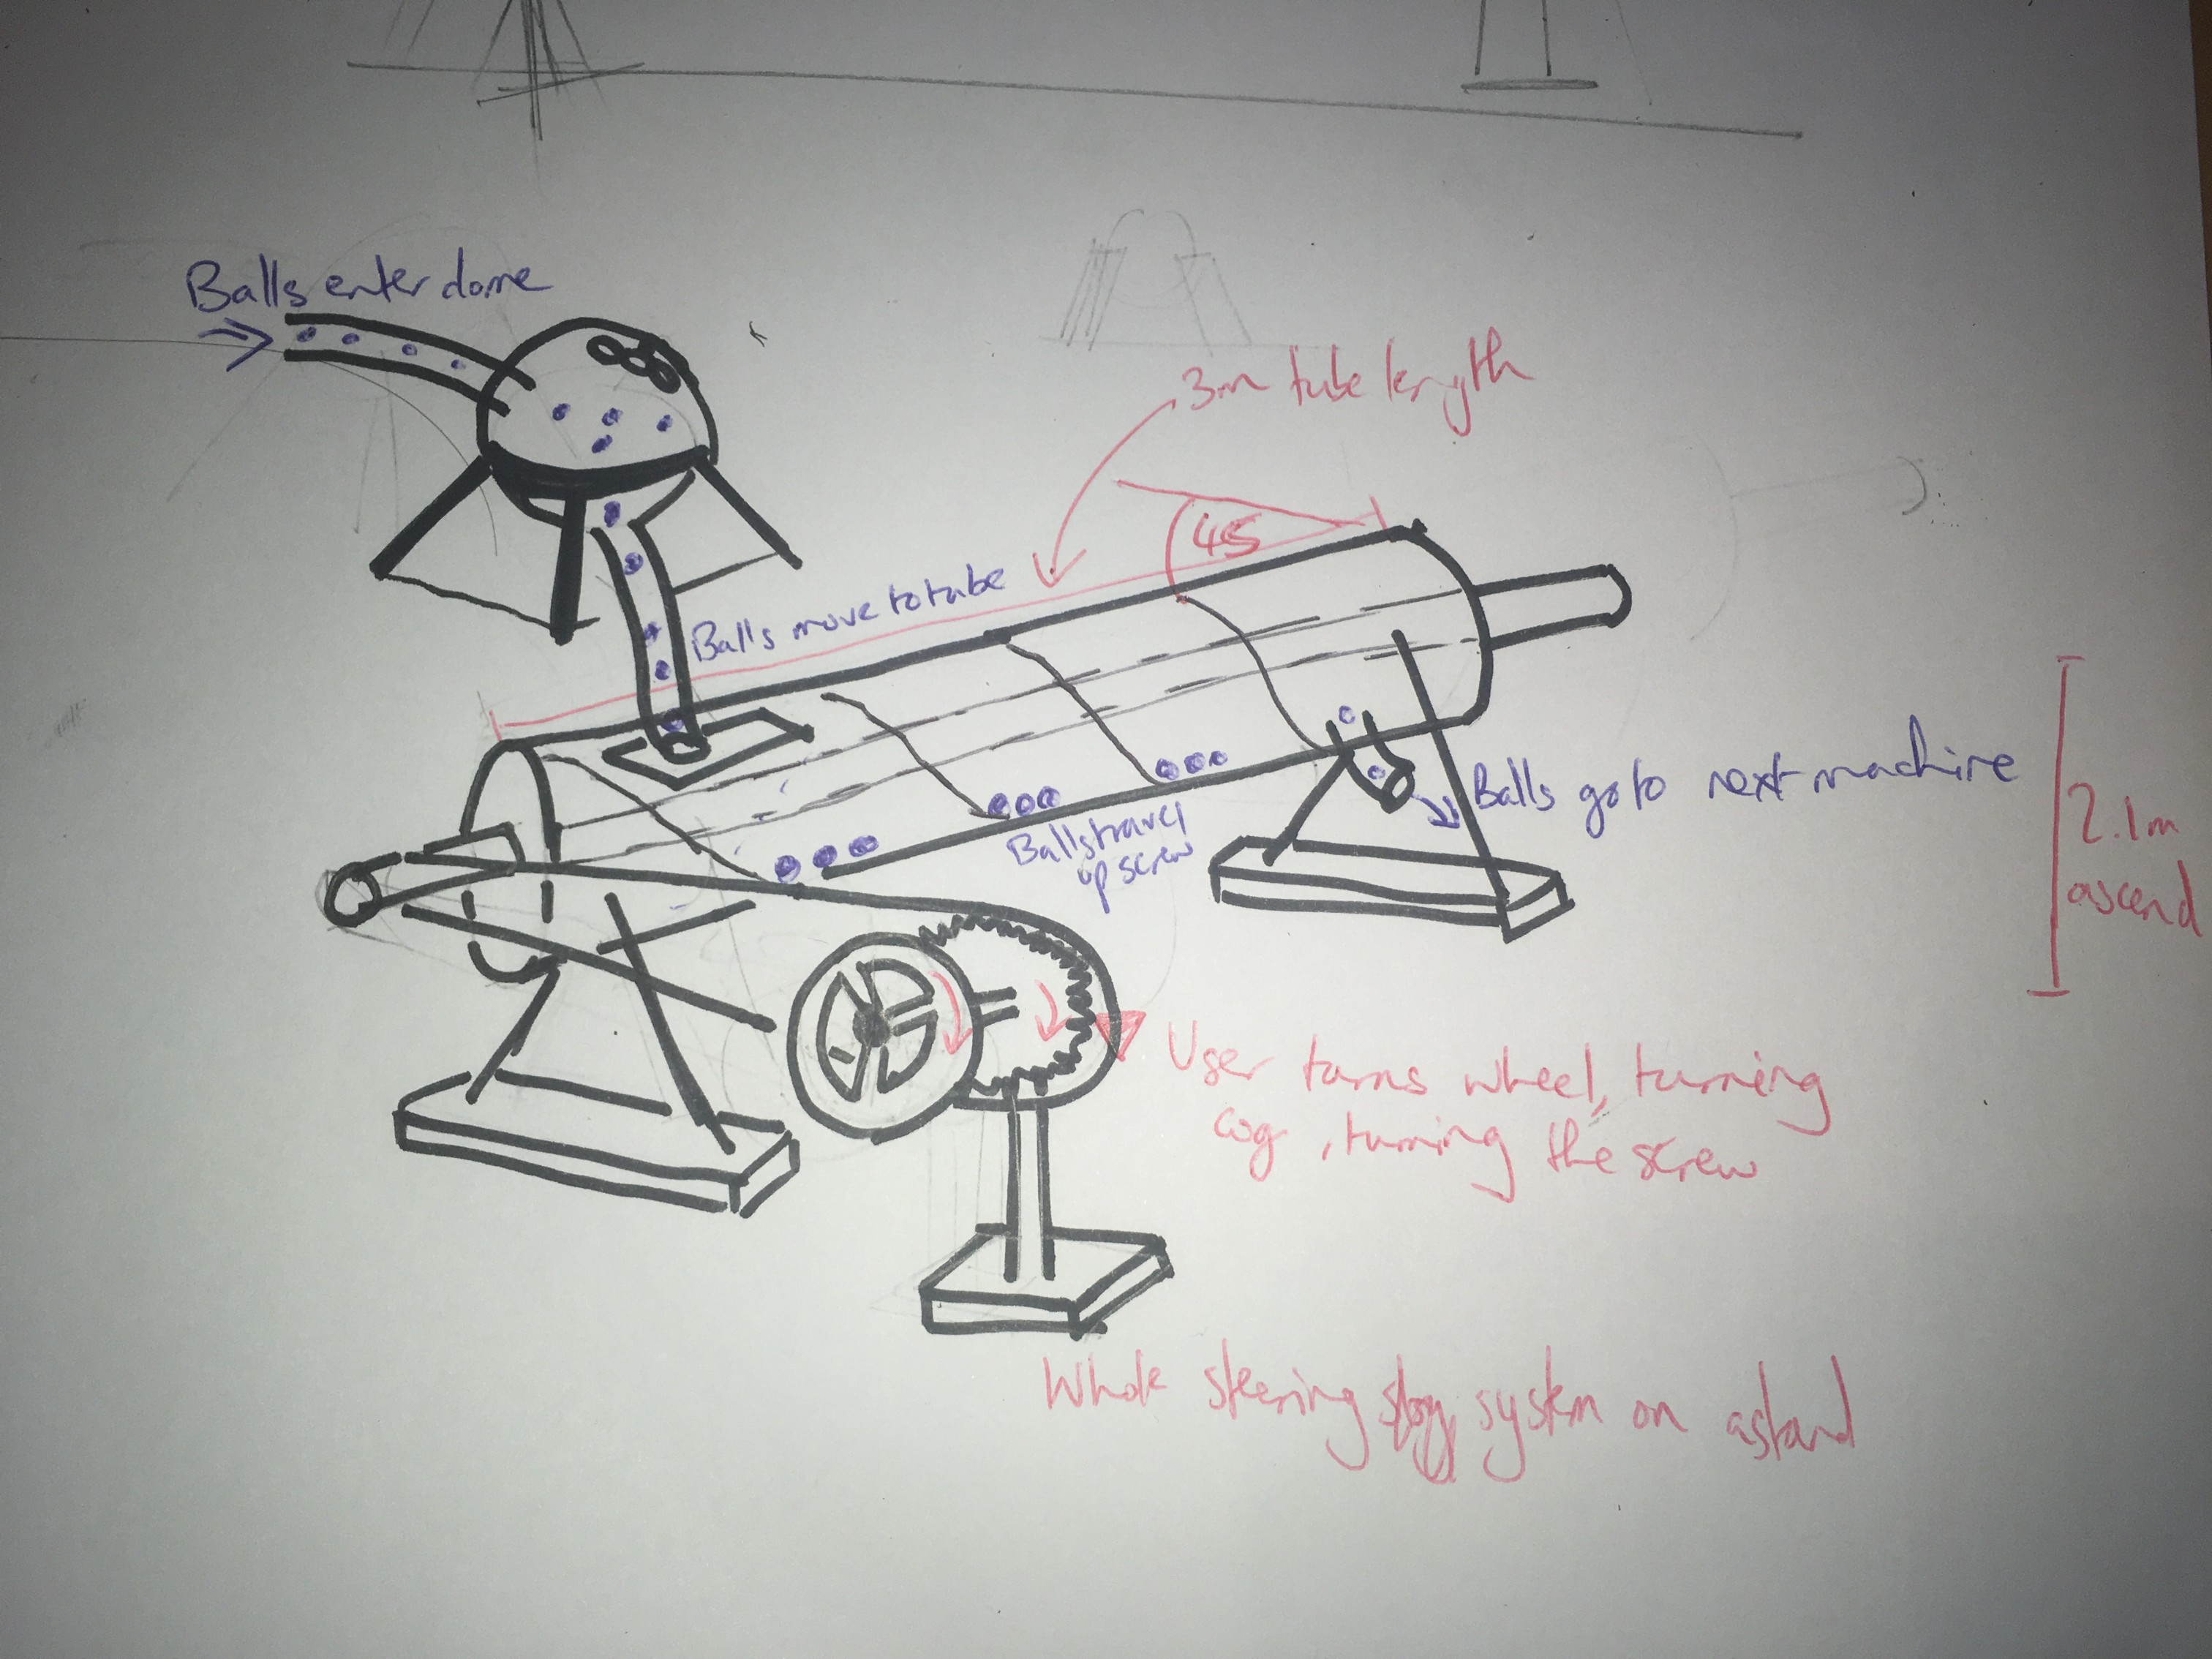 Balls enter dome
3m tube length
45
Balls move to tube
Balls go to next machine
Balls travel
up screw
2.1m
ascend
User turns wheel, turning
cog, turning the screw
Whole steering system on a stand